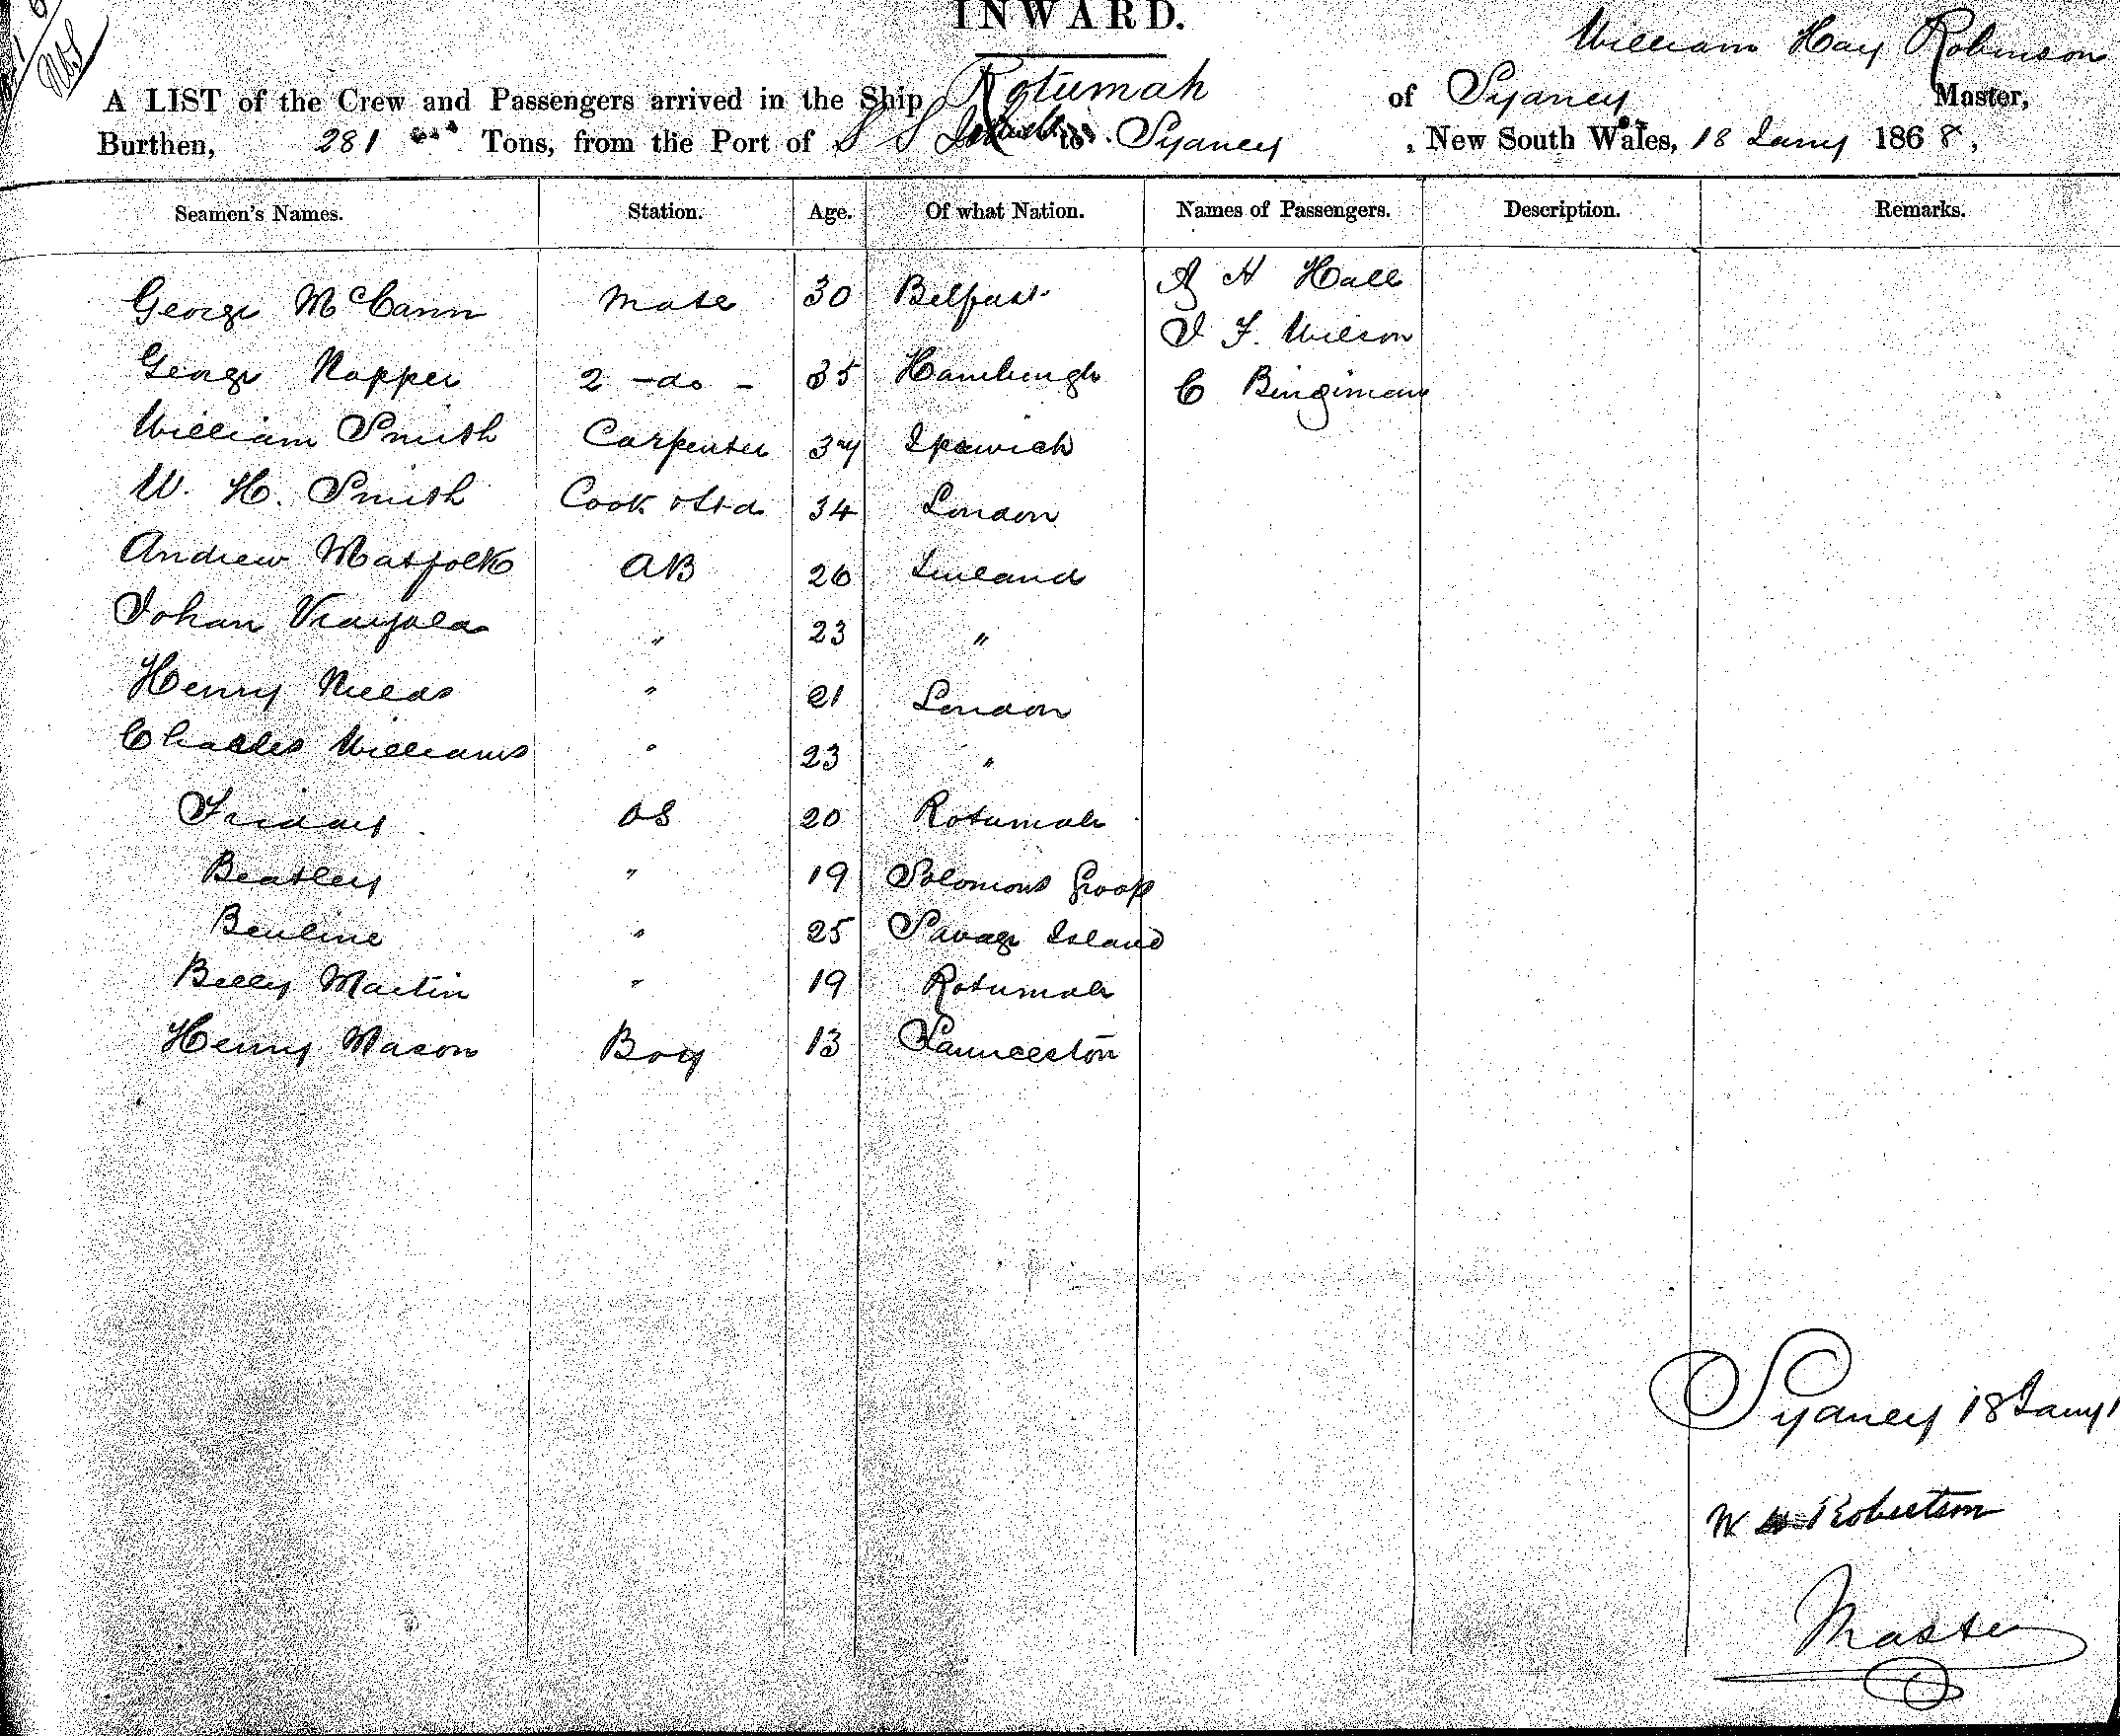 INWARD.
William Hay Robinson
A LIST of the Crew and Passengers arrived in the Ship Rotumah of Sydney Master,
Burthen, 281 Tons, from the Port of S S to Sydney, New South Wales, 18 Jany 1868,
Seamen's Names. Station. Age. Of what Nation. Names of Passengers. Description. Remarks.
George McCann Mate 30 Belfast A H Hall
J. F. Wilson
George Napper 2 -do- 35 Hamburgh C Bingimann
William Smith Carpenter 34 Ipswich
W. H. Smith Cook & Std 34 London
Andrew Matfolk AB 26 Finland
Johan 〃 23 〃
Henry Nields 〃 21 London
Charles Williams 〃 23 〃
Friday OS 20 Rotumah
Beatley 〃 19 Solomons Groop
Benline 〃 25 Savage Island
Billy Martin 〃 19 Rotumah
Henry Mason Boy 13 Launceston
Sydney 18 Jany 1
W Robertson
Master